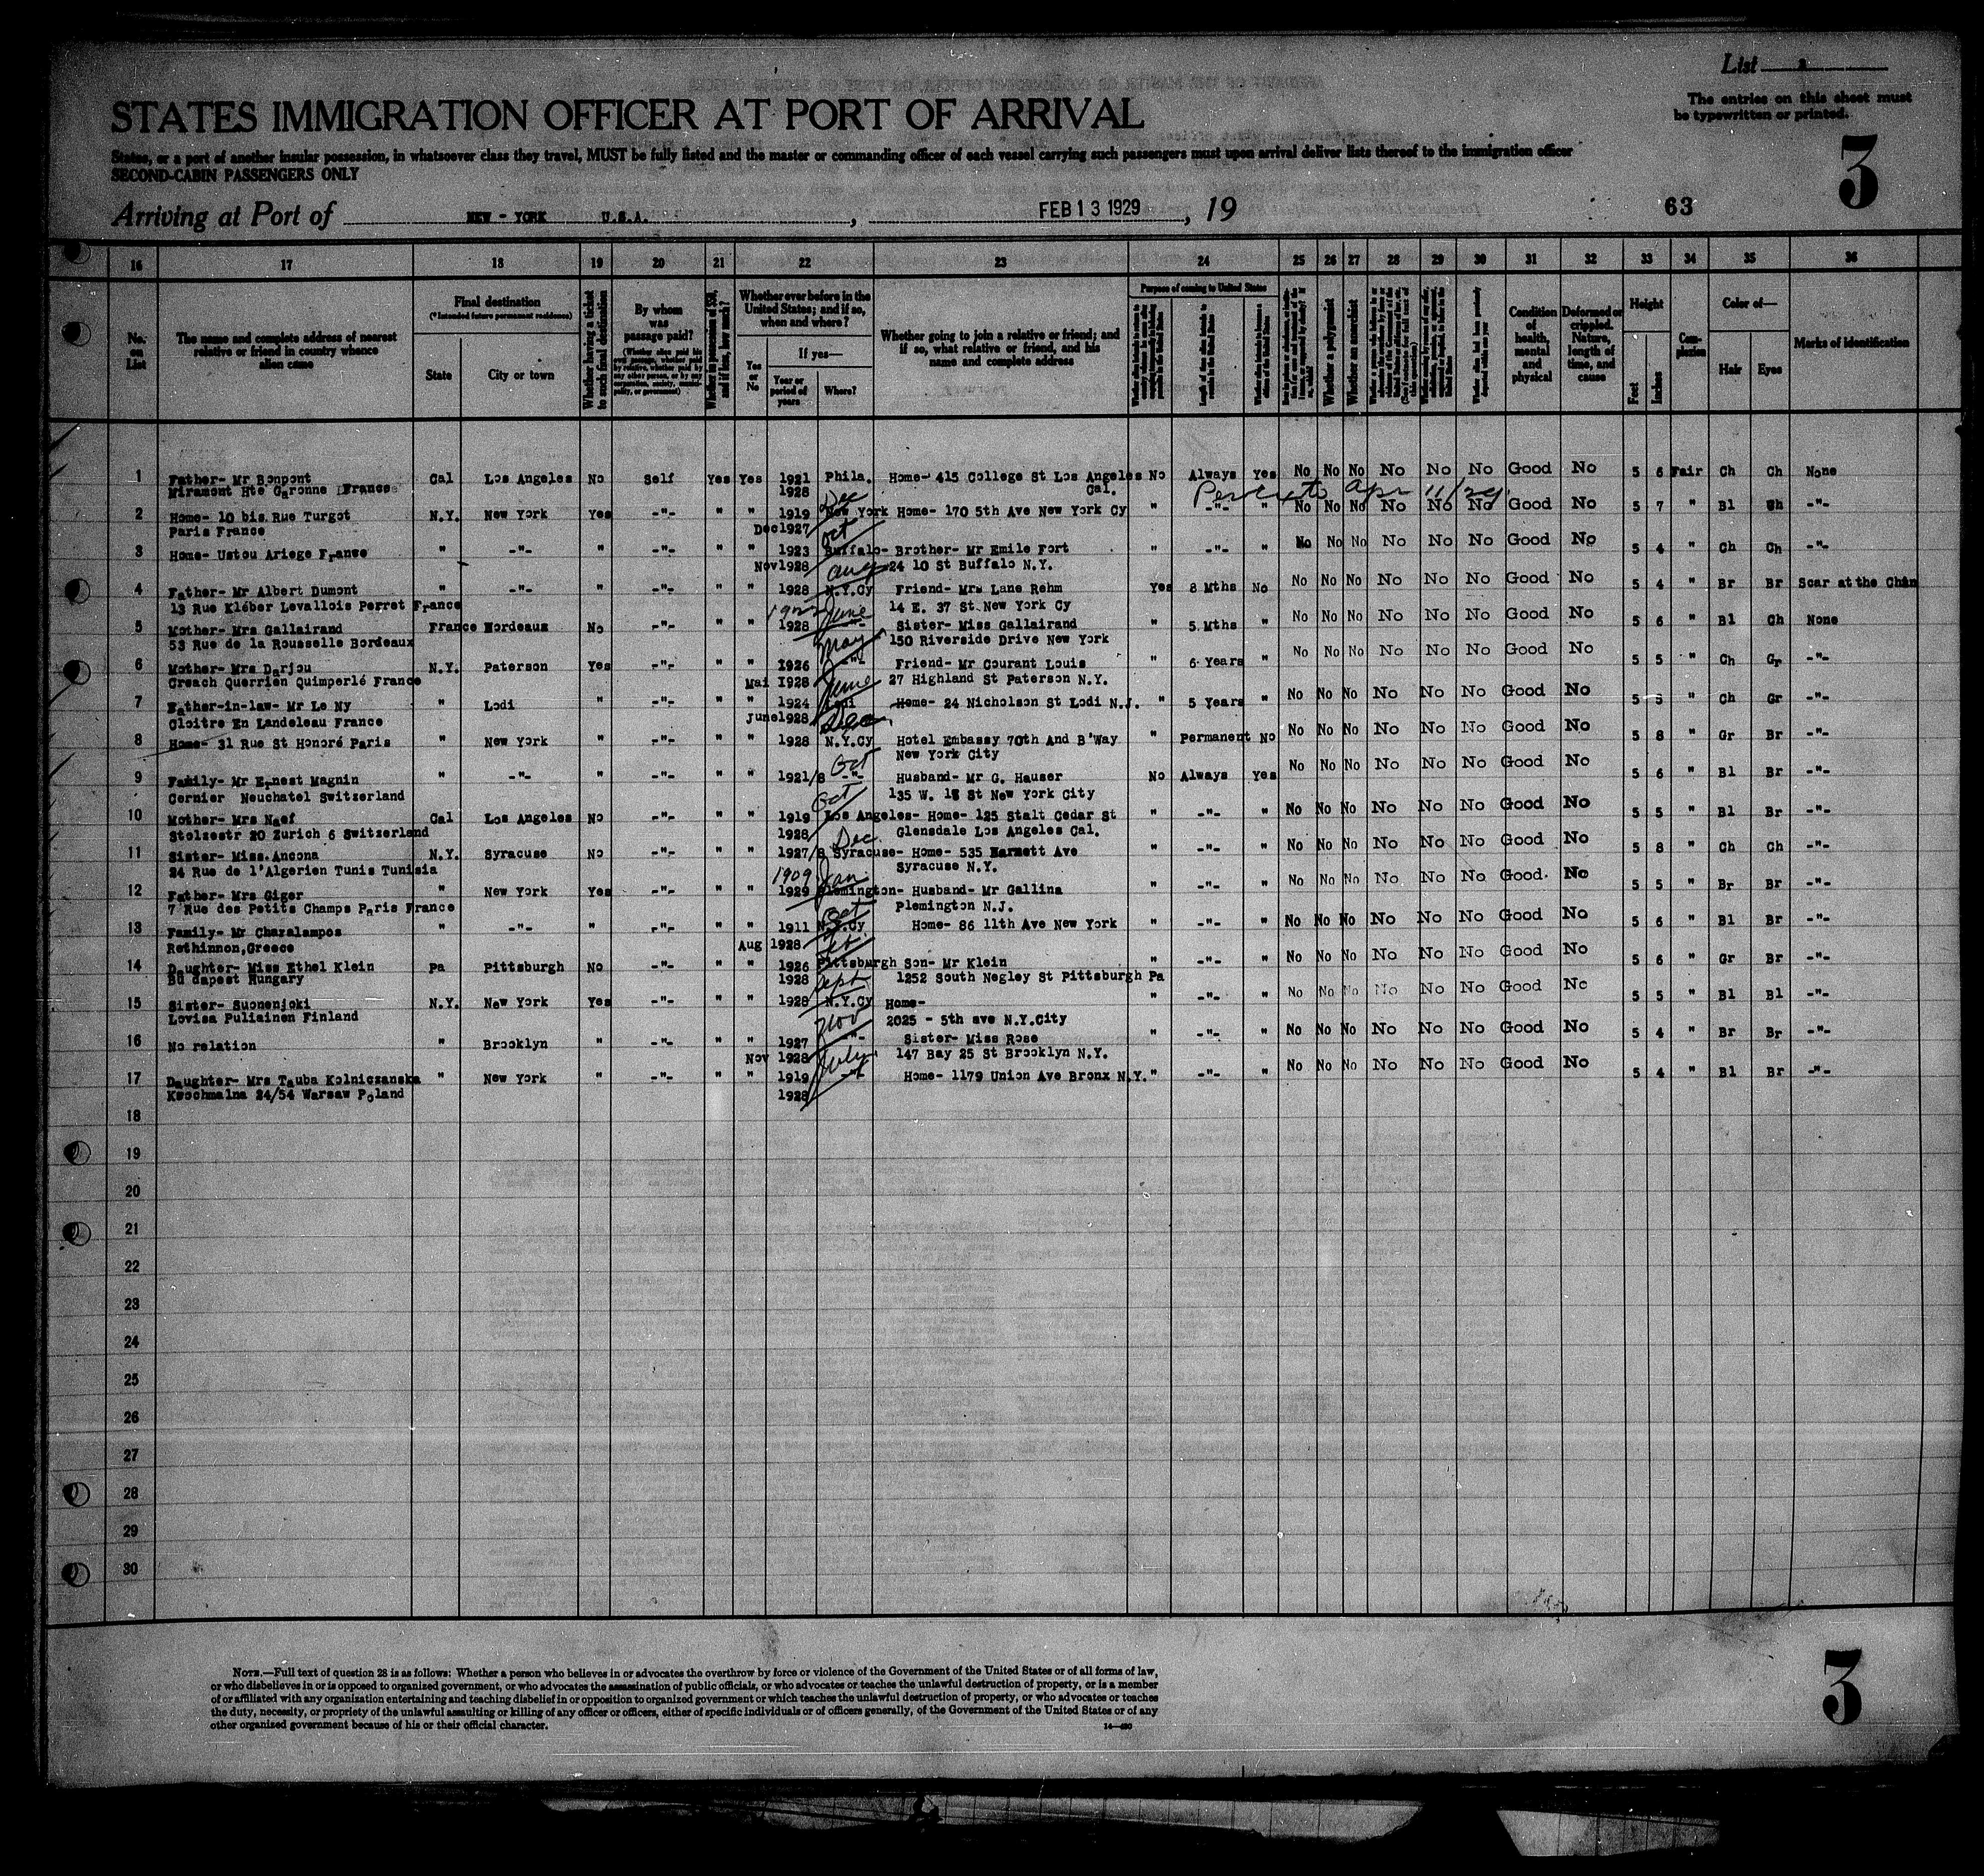 List 3
The entries on this sheet must
be typewritten or printed.
STATES IMMIGRATION OFFICER AT PORT OF ARRIVAL
3
States, or a port of another insular possession, in whatsoever class they travel, MUST be fully listed and the master or commanding officer of each vessel carrying such passengers must upon arrival deliver lists thereof to the immigration officer
SECOND-CABIN PASSENGERS ONLY
Arriving at Port of NEW - YORK U.S.A., FEB 13 1929, 19
63
16 17 18 19 20 21 22 23 24 25 26 27 28 29 30 31 32 33 34 35 36
No. on List
The name and complete address of nearest relative or friend in country whence alien came
Final destination
(*Intended future permanent residence)
State
City or town
Whether having a ticket to such final destination
By whom was passage paid?
Whether in possession of $50, and if less, how much?
Whether ever before in the United States; and if so, when and where?
Yes or No
If yes—
Year or period of years
Where?
Whether going to join a relative or friend; and if so, what relative or friend, and his name and complete address
Purpose of coming to United States
Whether a polygamist
Whether an anarchist
Condition of health, mental and physical
Deformed or crippled. Nature, length of time, and cause
Height
Feet
Inches
Complexion
Color of—
Hair
Eyes
Marks of identification
1 Father- Mr Bonpont Cal Los Angeles No Self Yes Yes 1921 Phila. Home- 415 College St Los Angeles No Always Yes No No No No No No Good No 5 6 Fair Ch Ch None
Miramont Hte Garonne France 1928 Dec Cal. Apr 11/29
2 Home- 10 bis Rue Turgot N.Y. New York Yes -"- " " 1919 New York Home- 170 5th Ave New York Cy " -"- " No No No No No No Good No 5 7 " Bl Ch -"-
Paris France Dec1927 Oct
3 Home- Ustou Ariege France " -"- " -"- " " 1923 Buffalo- Brother- Mr Emile Fort " -"- " No No No No No No Good No 5 4 " Ch Ch -"-
Nov1928 Aug 24 10 St Buffalo N.Y.
4 Father- Mr Albert Dumont " -"- " -"- " " 1928 N.Y.Cy Friend- Mrs Lane Rehm Yes 8 Mths No No No No No No No Good No 5 4 " Br Br Scar at the Chin
13 Rue Kléber Levallois Perret France 1922 June 14 E. 37 St.New York Cy
5 Mother- Mrs Gallairand France Bordeaux No -"- " " 1928 Sister- Miss Gallairand " 5 Mths " No No No No No No Good No 5 6 " Bl Ch None
53 Rue de la Rousselle Bordeaux May 150 Riverside Drive New York
6 Mother- Mrs Darjou N.Y. Paterson Yes -"- " " 1926 -"- Friend- Mr Courant Louis " 6 Years " No No No No No No Good No 5 5 " Ch Gr -"-
Creach Querrien Quimperlé France Mai 1928 June 27 Highland St Paterson N.Y.
7 Father-in-law- Mr Le Ny " Lodi " -"- " " 1924 Lodi Home- 24 Nicholson St Lodi N.J. " 5 Years " No No No No No No Good No 5 5 " Ch Gr -"-
Cloitre En Landeleau France June1928 Dec
8 Home- 31 Rue St Honoré Paris " New York " -"- " " 1928 N.Y.Cy Hotel Embassy 70th And B'Way " Permanent No No No No No No No Good No 5 8 " Gr Br -"-
Oct New York City
9 Family- Mr Ernest Magnin " -"- " -"- " " 1921/8 -"- Husband- Mr G. Hauser No Always Yes No No No No No No Good No 5 6 " Bl Br -"-
Cernier Neuchatel Switzerland Oct 135 W. 18 St New York City
10 Mother- Mrs Naef Cal Los Angeles No -"- " " 1919 Los Angeles- Home- 125 Stalt Cedar St " -"- " No No No No No No Good No 5 5 " Bl Br -"-
Stolzestr 20 Zurich 6 Switzerland 1928 Dec Glensdale Los Angeles Cal.
11 Sister- Miss.Ancona N.Y. Syracuse No -"- " " 1927/8 Syracuse- Home- 535 Ave " -"- " No No No No No No Good No 5 8 " Ch Ch -"-
24 Rue de l'Algerien Tunis Tunisia 1909 Jan Syracuse N.Y.
12 Father- Mrs Giger " New York Yes -"- " " 1929 Flemington- Husband- Mr Gallina " -"- " No No No No No No Good No 5 5 " Br Br -"-
7 Rue des Petits Champs Paris France Oct Plemington N.J.
13 Family- Mr Charalampos " -"- " -"- " " 1911 N.Y.Cy Home- 86 11th Ave New York " -"- " No No No No No No Good No 5 6 " Bl Br -"-
Rethinnon,Greece Aug 1928
14 Daughter- Miss Ethel Klein Pa Pittsburgh No -"- " " 1926 Pittsburgh Son- Mr Klein " -"- " No No No No No No Good No 5 6 " Gr Br -"-
Bu dapest Hungary 1928 Sept 1252 South Negley St Pittsburgh Pa
15 Sister- Suonenjoki N.Y. New York Yes -"- " " 1928 N.Y.Cy Home- " -"- " No No No No No No Good No 5 5 " Bl Bl -"-
Lovisa Puliainen Finland Nov 2025 - 5th ave N.Y.City
16 No relation " Brooklyn " -"- " " 1927 -"- Sister- Miss Rose " -"- " No No No No No No Good No 5 4 " Br Br -"-
Nov 1928 July 147 Bay 25 St Brooklyn N.Y.
17 Daughter- Mrs Tauba Kolniczanska " New York " -"- " " 1919 -"- Home- 1179 Union Ave Bronx N.Y. " -"- " No No No No No No Good No 5 4 " Bl Br -"-
Kwochmalna 24/54 Warsaw Poland 1928
18
19
20
21
22
23
24
25
26
27
28
29
30
NOTE.—Full text of question 28 is as follows: Whether a person who believes in or advocates the overthrow by force or violence of the Government of the United States or of all forms of law,
or who disbelieves in or is opposed to organized government, or who advocates the assassination of public officials, or who advocates or teaches the unlawful destruction of property, or is a member
of or affiliated with any organization entertaining and teaching disbelief in or opposition to organized government or which teaches the unlawful destruction of property, or who advocates or teaches
the duty, necessity, or propriety of the unlawful assaulting or killing of any officer or officers, either of specific individuals or of officers generally, of the Government of the United States or of any
other organized government because of his or their official character.
3